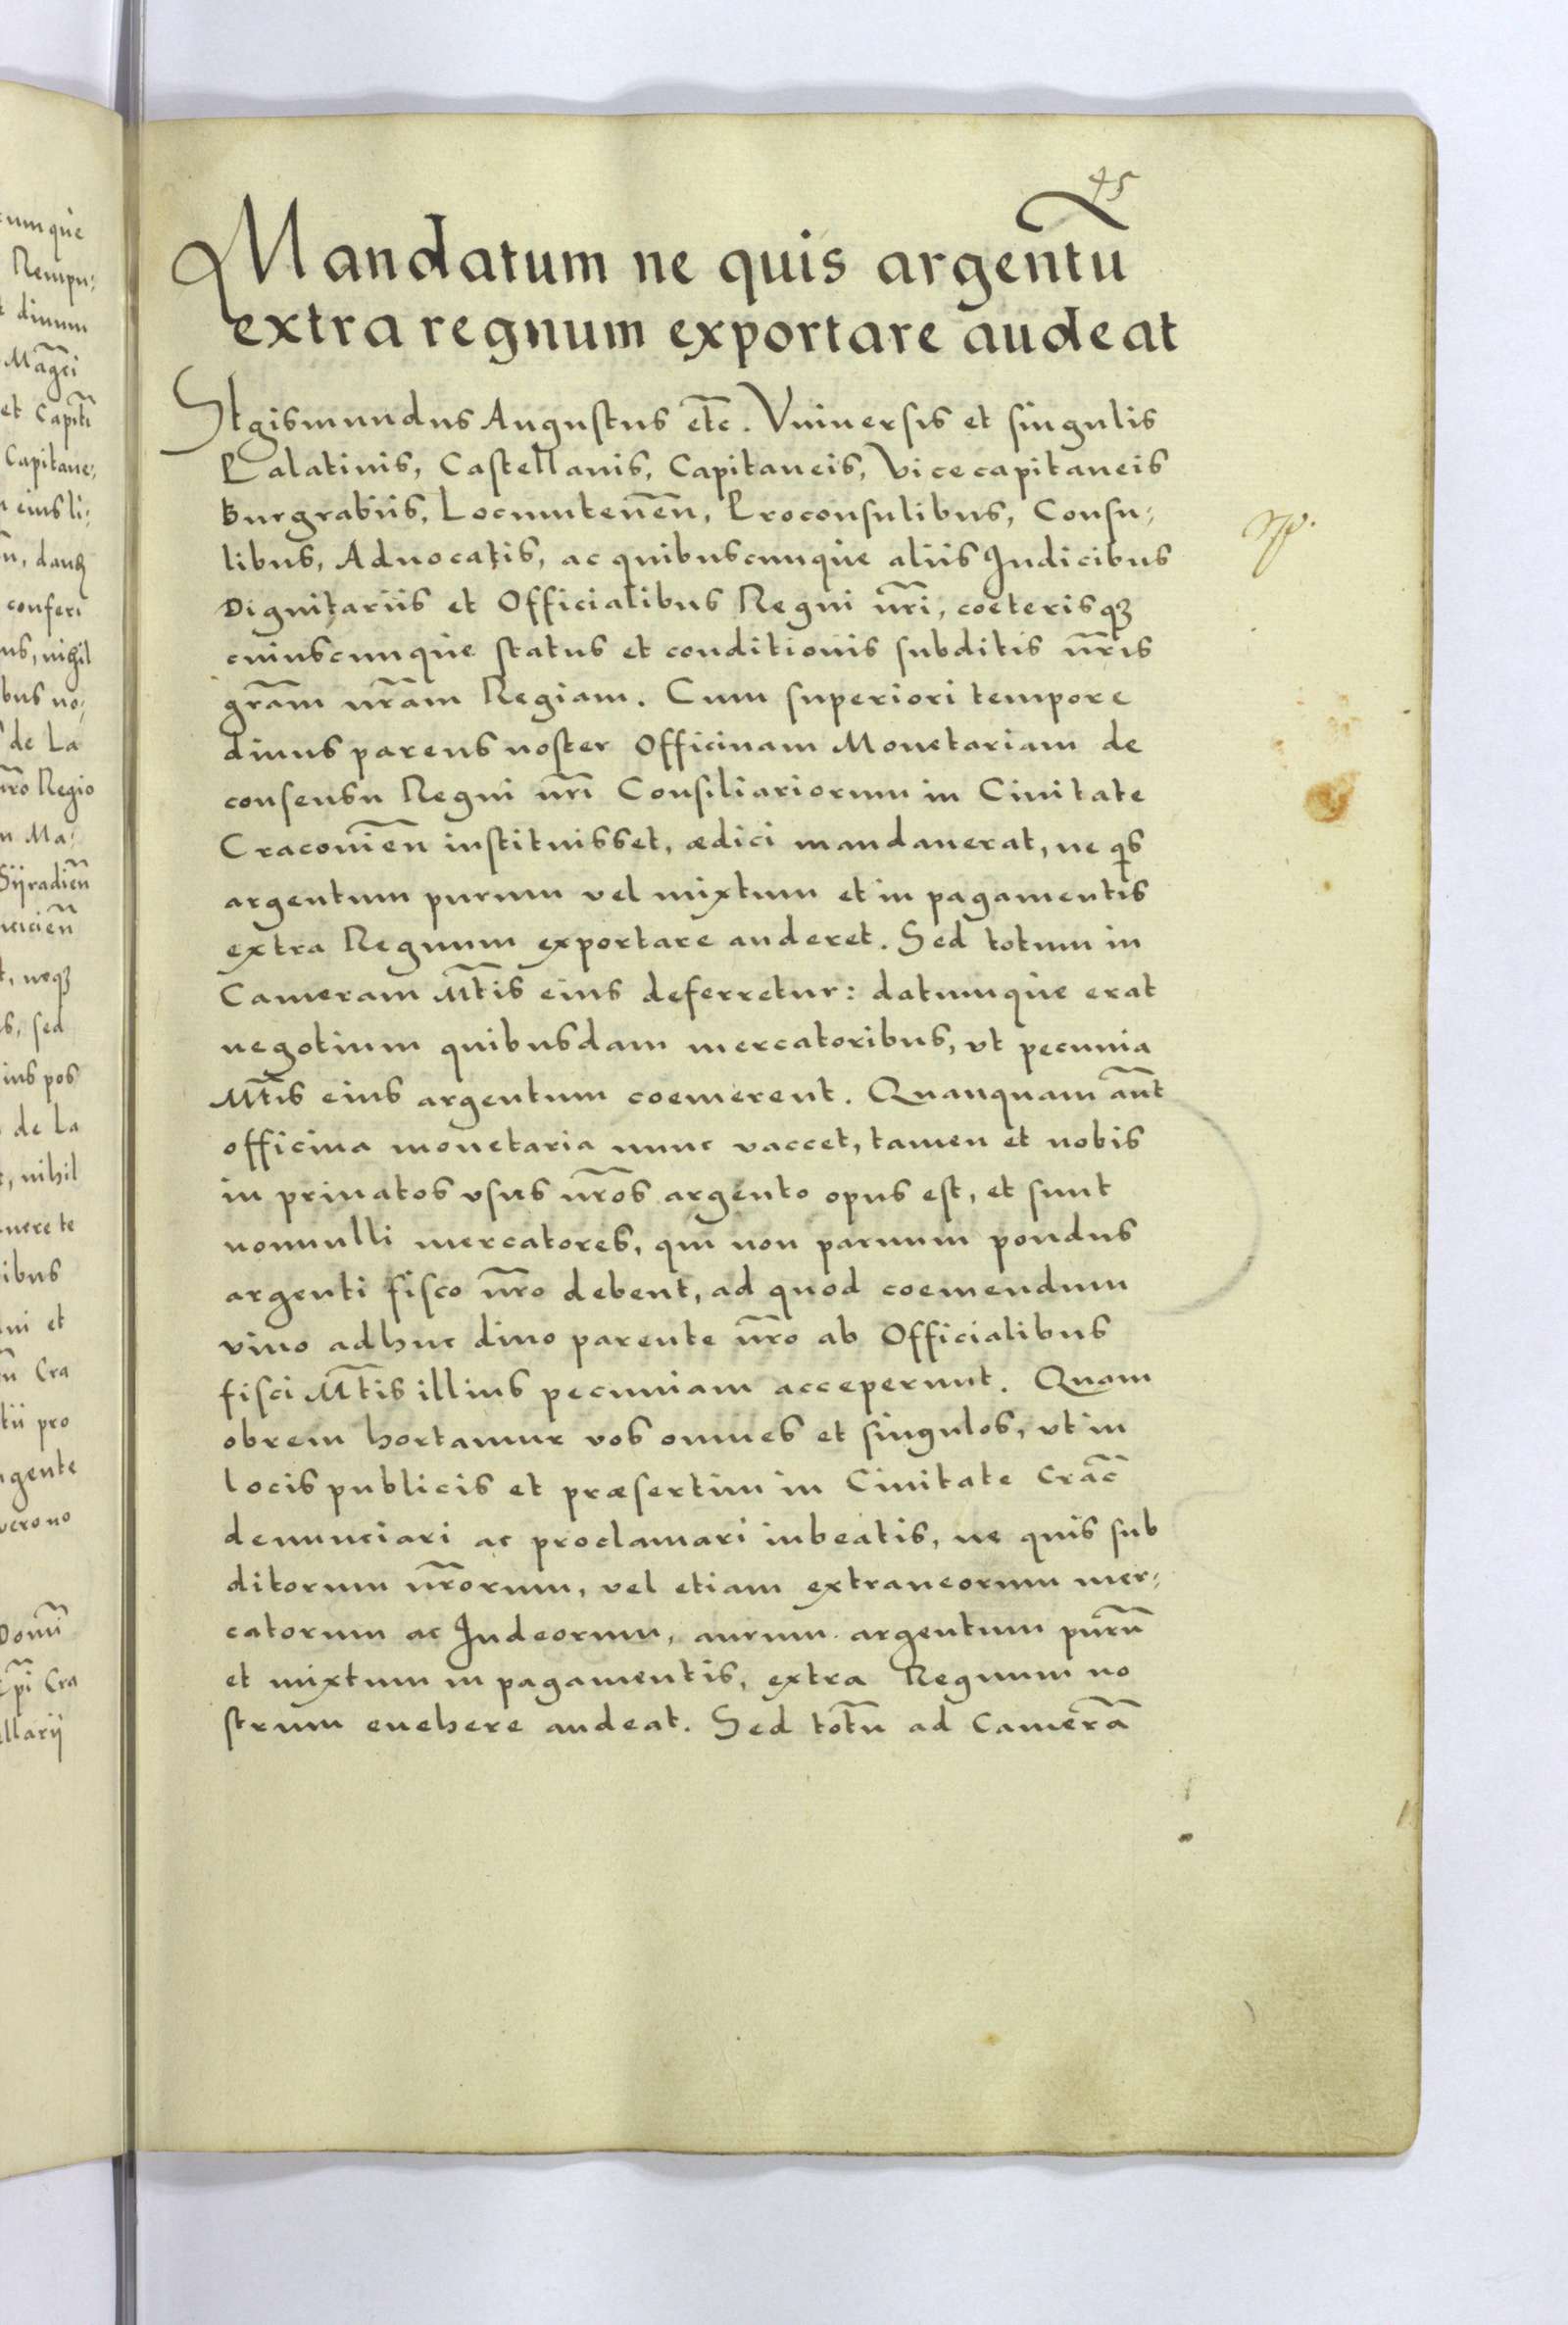 45
Mandatum ne quis argentũ
extra regnum exportare audeat
Sigismundus Augustus etc̃. Vniuersis et singulis
Palatinis, Castellanis, Capitaneis, Vicecapitaneis
Burgrabiis, Locumteneñ, Proconsulibus, Consu-
libus, Aduocatis, ac quibuscunque aliis Iudicibus
Dignitariis et Officialibus Regni nr̃i, coeterisqꝫ
cuiuscunque status et conditionis subditis nr̃is
gr̃am nr̃am Regiam. Cum superiori tempore
diuus parens noster Officinam Monetariam de
consensu Regni nr̃i Consiliariorum in Ciuitate
Cracouieñ instituisset, ædici mandauerat, ne qis
argentum purum vel mixtum et in pagamentis
extra Regnum exportare auderet. Sed totum in
Cameram Mt̃is eius deferretur: datumque erat
negotium quibusdam mercatoribus, vt pecunia
Mt̃is eius argentum coemerent. Quanquam aũt
officina monetaria nunc vaccet, tamen et nobis
in priuatos vsus nr̃os argento opus est, et sunt
nonnulli mercatores, qui non paruum pondus
argenti fisco nr̃o debent, ad quod coemendum
viuo adhuc diuo parente nr̃o ab Officialibus
fisci Mt̃is illius pecuniam acceperunt. Quam
obrem hortamur vos omnes et singulos, vt in
locis publicis et præsertim in Ciuitate Crac̃
denunciari ac proclamari iubeatis, ne quis sub
ditorum nr̃orum, vel etiam extraneorum mer-
catorum ac Iudeorum, aurum argentum purũ
et mixtum in pagamentis, extra Regnum no
strum euehere audeat. Sed totũ ad Camerã